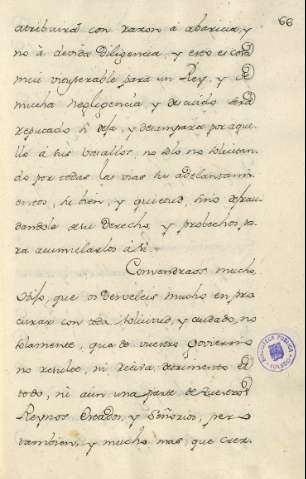 66
atribuirá con razon á abaricia, y
no á devida Diligencia, y esto es cosa
mui vituperable para un Rey, y de
mucha negligencia, y descuido será
reputado si deja, y desampara por aque-
llo á sus vasallos, no solo no solicitan-
do por todas las vias su adelantami-
ento, su bien, y quietud, sino defrau-
dandole su derecho, y probechos, pa-
ra acumularlos á sí.
Convendraos mucho,
Hijo, que os desveleis mucho en pro-
curar con toda solicitud, y cuidado, no
solamente, que de vuestro Govierno
no resulte, ni reciva, detrimento el
todo, ni aún una parte de vuestros
Reynos, Estados, y Señorios, pero
tambien, y mucho mas, que crez-
BIBLIOTECA PUBLICA
TOLEDO